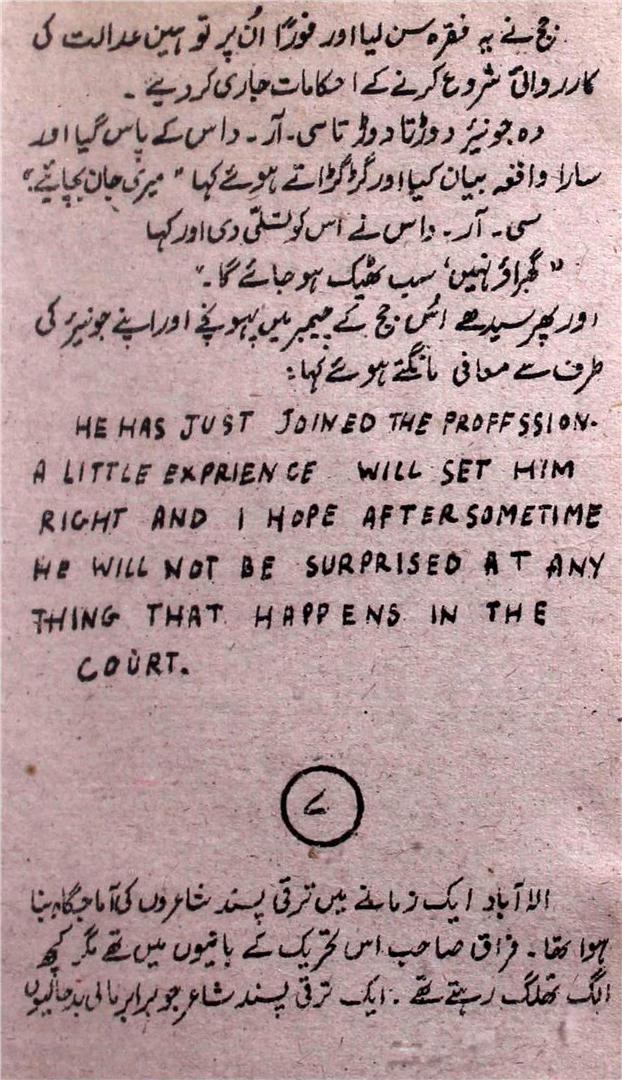 جج نے یہ فقرہ سن لیا اور فوراً اُن پر توہین عدالت کی
کارروائی شروع کرنے کے احکامات جاری کر دیے ۔
وہ جونیئر دوڑتا دوڑتا سی۔ آر۔ داس کے پاس گیا اور
سارا واقعہ بیان کیا اور گڑگڑاتے ہوئے کہا "میری جان بچایئے"
سی۔ آر۔ داس نے اس کو تسلّی دی اور کہا
"گھبراؤ نہیں، سب ٹھیک ہو جائے گا۔"
اور پھر سیدھے اُس جج کے چیمبر میں پہونچے اور اپنے جونیئر کی
طرف سے معافی مانگتے ہوئے کہا:
HE HAS JUST JOINED THE PROFFSSION.
A LITTLE EXPRIENCE WILL SET HIM
RIGHT AND I HOPE AFTER SOMETIME
He WILL NOT BE SURPRISED AT ANY
THING THAT HAPPENS IN THE
COURT.
۷
الہ آباد ایک زمانے میں ترقی پسند شاعروں کی آماجگاہ بنا
ہوا تھا۔ فراق صاحب اس تحریک کے بانیوں میں تھے مگر کچھ
الگ تھلگ رہتے تھے ۔ ایک ترقی پسند شاعر جو برابر مالی بدحالیوں